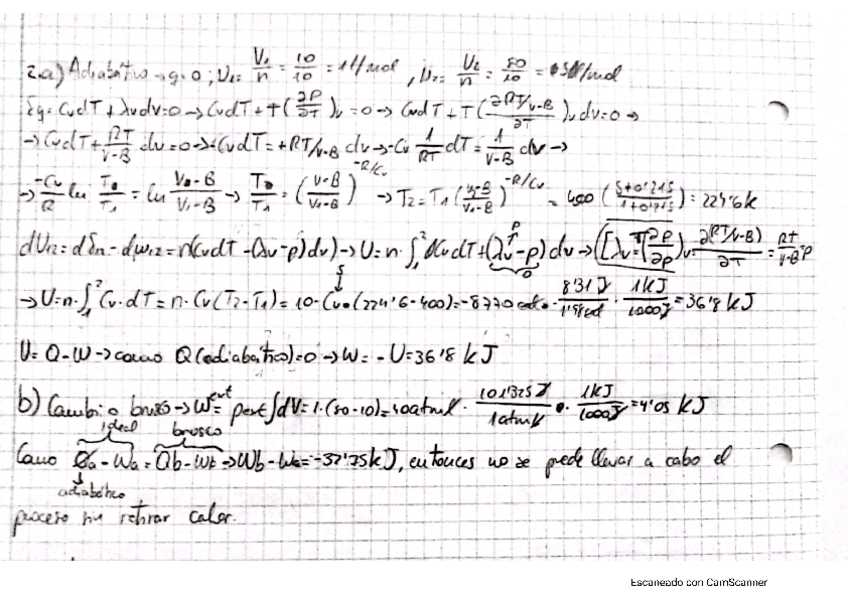 2.a) Adiabático → q=0 ; v₁= V₁/n = 10/10 = 1 l/mol , v₂= V₂/n = 50/10 = 5 l/mol
δq= CvdT + λvdv=0 → CvdT + T(∂P/∂T)v =0 → CvdT + T(∂RT/v-B/∂T)v dv=0 →
→ CvdT + RT/v-B dv=0 → -CvdT=+RT/v-B dv → -Cv 1/RT dT= 1/v-B dv →
→ -Cv/R ln T2/T1 = ln V2-B/V1-B → T2/T1 = (V2-B/V1-B)^-R/Cv → T2= T1 (V2-B/V1-B)^-R/Cv = 400 (5+0'215/1+0'215) = 224'6 k
dU12= dq12 - dw12= n(CvdT -(λv-p)dv) → U= n·∫₁² CvdT+(λv-p) dv → ([λv=T(∂P/∂T)v= ∂(RT/v-B)/∂T = RT/v-B=P
→ U= n·∫₁² Cv·dT = n·Cv(T2-T1)= 10·Cv·(224'6-400)=-8770 cal· 8'31 J/1'98 cal · 1 kJ/1000J = 36'8 kJ
U= Q-W → como Q(adiabático)=0 → W= -U=36'8 kJ
b) Cambio brusco → W^ext= pext∫dV= 1·(50-10)=40atml · 101'325 J/1atml · 1kJ/1000J =4'05 kJ
ideal brusco
Como Qa-Wa= Qb-Wb → Wb-Wa=-32'75kJ, entonces no se puede llevar a cabo el
adiabático
proceso sin retirar calor.
Escaneado con CamScanner